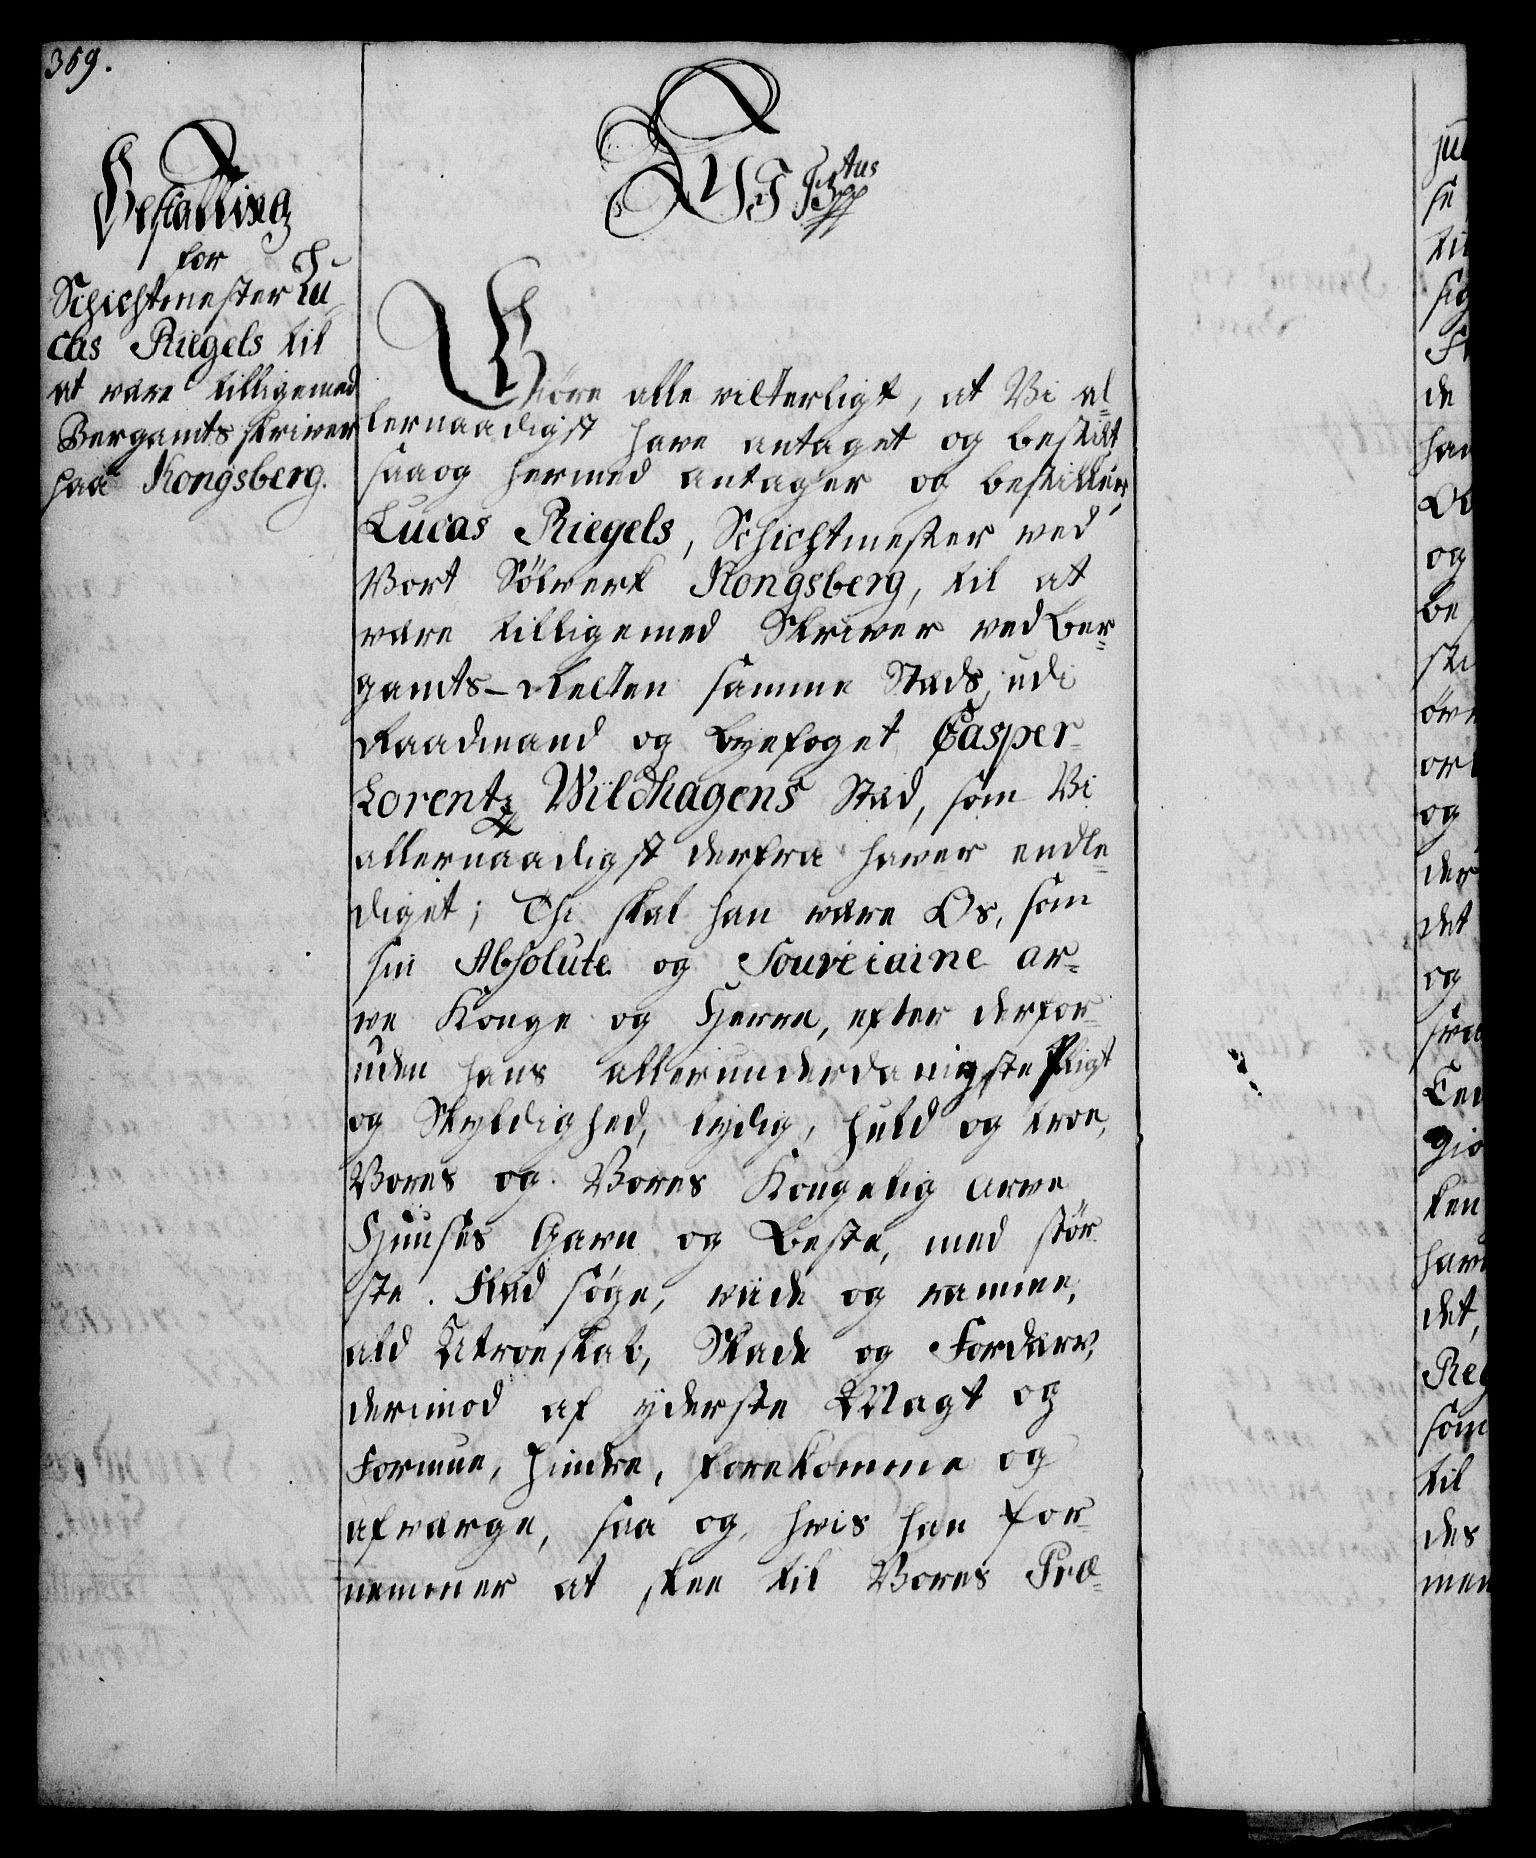 359.
Bestalling
for
Schichtmester Lu-
cas Riegels til
at være tilligemed
Bergamts skriver
paa Kongsberg.
Giöre alle vitterligt, at Vi al=
lernaadigst have antaget og bestilt
saaog hermed antager og bestiller
Lucas Riegels, Schichtmester ved
Vort Sölverk Kongsberg, til at
være tilligemed Skriver ved Ber=
gamts-Retten samme Stæds, udi
Raadmand og Byefoget Casper
Lorentz Wildhagens Stæd, som Vi
allernaadigst derfra haver endle=
diget; Thi skal han være Os, som
sin Absolute og Souveraine Ar=
ve Konge og Herre, efter derfor
uden hans allerunderdanigste Pligt
og Skyldighed, lydig, huld og troe,
Vores og Vores Kongelig Arve
Huuses Gavn og Beste, med stör
ste Flid söge, viide og ramme,
ald Utroeskab, Skade og Fordærv,
derimod af yderste Magt og
Formue, hindre, forekomme og
afværge, saa og, hvis han for
nemmer at skee til Vores Præ=
ju
se
til
sig
de
han
og
be
ski
öve
og
der
det
og
gio
ken
have
det,
Reg
som
til
des
men